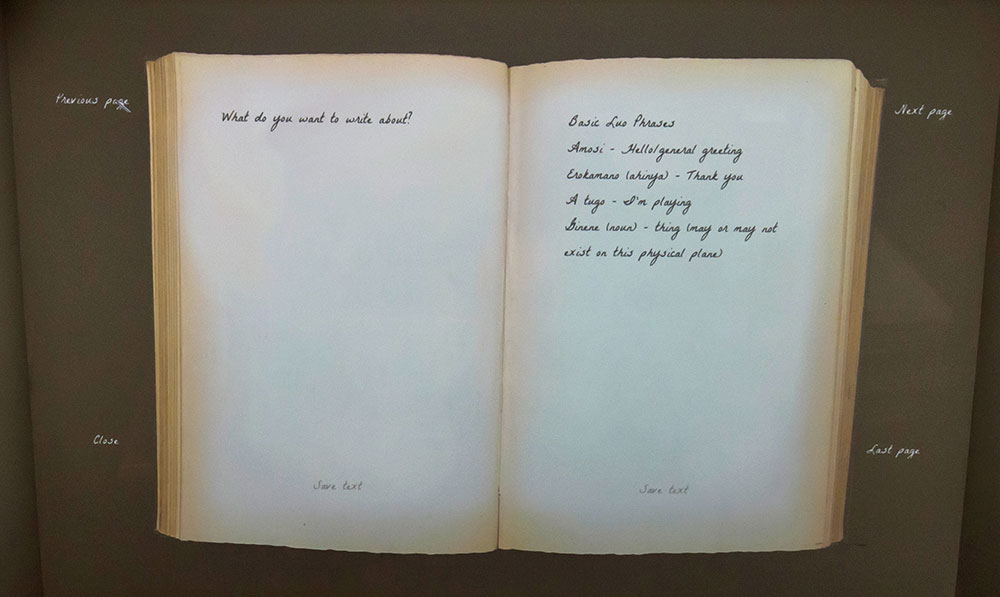 Previous page
What do you want to write about?
Save text
Close
Basic Luo Phrases
Amosi - Hello/general greeting
Erokamano (ahinya) - Thank you
A tugo - I'm playing
Ginene (noun) - thing (may or may not
exist on this physical plane)
Save text
Next page
Last page